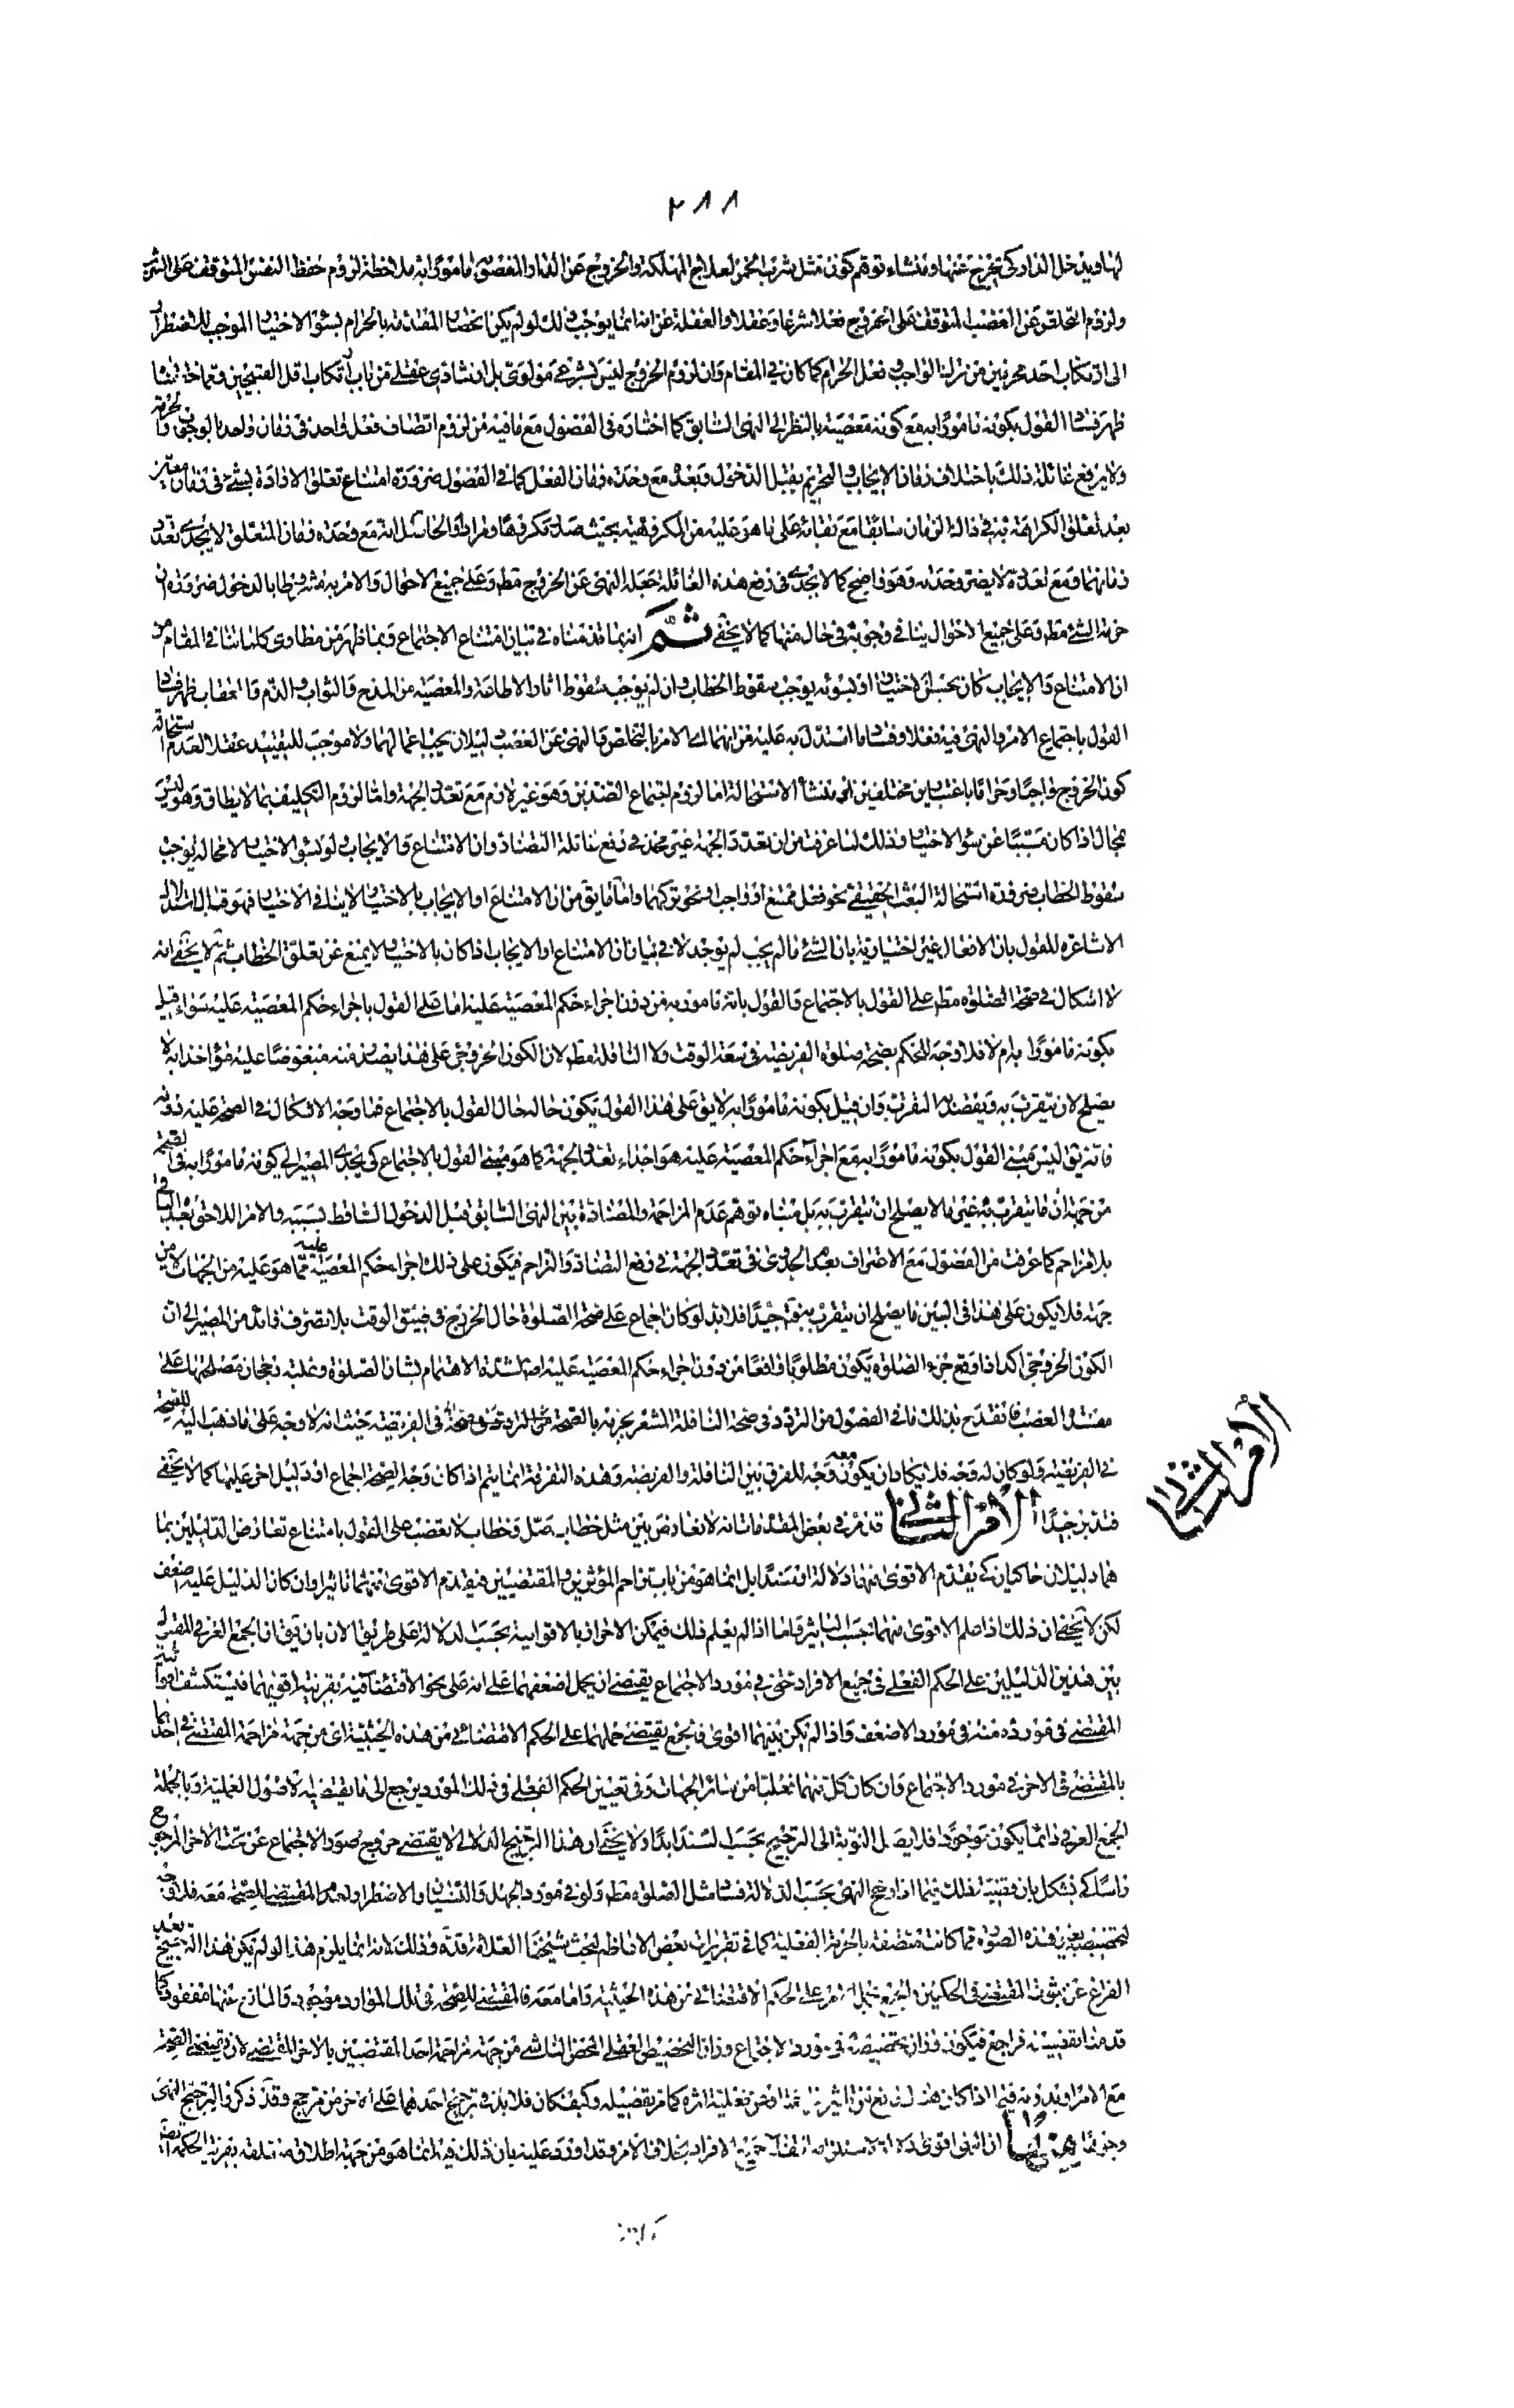 ٢٨٨
لها ويدخل الدار كى يخرج عنها ومنشاء توهم كون مثل شرب الخمر لعلاج المهلكة والخروج عن الدار المغصوبة مامورا به ملاحظة لزوم حفظ النفس المتوقف على الشرب
ولزوم التخلص عن الغصب المتوقف على الخروج فعلا شرعا وعقلا والغفلة عن انه انما يوجب ذلك لو لم يكن انحصار المقدمة بالحرام بسوء الاختيار الموجب للاضطرار
الى ارتكاب احد محرمين من ترك الواجب وفعل الحرام كما كان فى المقام وان لزوم الخروج ليس بشرعى مولوى بل ارشادى عقلى من باب ارتكاب اقل القبيحين ومما ذكرنا
ظهر فساد القول بكونه مامورا به مع كونه معصية بالنظر الى النهى السابق كما اختاره فى الفصول مع ما فيه من لزوم اتصاف فعل واحد فى زمان واحد بالوجوب والحرمة
ولا يرفع غائلة ذلك باختلاف زمان الايجاب والتحريم بقبل الدخول وبعده مع وحدة زمان الفعل كما فى الفصول ضرورة امتناع تعلق الارادة بشىء فى زمان معين
بعد تعلق الكراهة به فى ذاك الزمان سابقا مع بقائه على ما هو عليه من المكروهية بحيث صار مكروها ومرادا والحاصل انه مع وحدة زمان المتعلق لا يجدى تعدد
زمانهما ومع تعدده لا يضر وحدته وهو واضح كما لا يجدى فى رفع هذه الغائلة جعل النهى عن الخروج مط وعلى جميع الاحوال والامر به مشروطا بالدخول ضرورة ان
حرمة الشىء مط وعلى جميع الاحوال ينافى وجوبه فى حال منها كما لا يخفى ثم انه بما قدمناه فى بيان امتناع الاجتماع وبما ظهر من مطاوى كلماتنا فى المقام من
ان الامتناع والايجاب كان بحسن الاختيار او بسوئه يوجب سقوط الخطاب وان لم يوجب سقوط اثار الاطاعة والمعصية من المدح والثواب والذم والعقاب ظهر فساد
القول باجتماع الامر والنهى فيه فعلا وفساد ما استدل به عليه من انهما اى الامر بالتخلص والنهى عن الغصب دليلان يجب اعمالهما ولا موجب للتقييد عقلا لعدم استحالة
كون الخروج واجبا وحراما باعتبارين مختلفين اذ منشأ الاستحالة اما لزوم اجتماع الضدين وهو غير لازم مع تعدد الجهة واما لزوم التكليف بما لا يطاق وهو ليس
بمحال اذا كان مسببا عن سوء الاختيار وذلك لما عرفت من ان تعدد الجهة غير مجد فى رفع غائلة التضاد وان الامتناع والايجاب ولو بسوء الاختيار لا محالة يوجب
سقوط الخطاب ضرورة استحالة البعث الحقيقى نحو فعل ممتنع او واجب او نحو تركهما واما ما يق من ان الامتناع او الايجاب بالاختيار لا ينافى الاختيار فهو قبال استدلال
الاشاعرة للقول بان الافعال غير اختيارية بان الشىء ما لم يجب لم يوجد لا فى بيان ان الامتناع او الايجاب اذا كان بالاختيار لا يمنع عن تعلق الخطاب ثم لا يخفى انه
لا اشكال فى صحة الصلوة مط على القول بالاجتماع والقول بانه مامور به من دون اجراء حكم المعصية عليه اما على القول باجراء حكم المعصية عليه سواء قيل
بكونه مامورا به ام لا فلا وجه للحكم بصحة صلوة الفريضة فى سعة الوقت ولا النافلة مط لان الكون الخروجى على هذا يصدر منه مبغوضا عليه مؤاخذا به لا
يصلح لان يتقرب به ويقصد به التقرب وان قيل بكونه مامورا به لا يق على هذا القول يكون حاله حال القول بالاجتماع فما وجه الاشكال فى الصحة عليه دونه
فانه يق ليس مبنى القول بكونه مامورا به مع اجراء حكم المعصية عليه هو اجداء تعدد الجهة كما هو مبنى القول بالاجتماع كى يجدى المصير الى كونه مامورا به فى الصحة
من جهة أن ما يتقرب به غير ما لا يصلح ان يتقرب به بل مبناه توهم عدم المزاحمة والمضادة بين النهى السابق قبل الدخول الساقط بسببه والامر اللاحق بعد الباقى
بلا مزاحم كما عرفت من الفصول مع الاعتراف بعدم الجدوى فى تعدد الجهة فى رفع التضاد والتزاحم فيكون على ذلك اجراء حكم المعصية عليه مما هو عليه من الجهات لا من
جهة فلا يكون على هذا فى البين ما يصلح ان يتقرب به بنفسه جيدا فلا بد لو كان اجماع على صحة الصلوة حال الخروج فى ضيق الوقت بلا تصرف زائد من المصير الى ان
الكون الخروجى كذا اذا وقع جزء الصلوة يكون مطلوبا واقعا من دون اجراء حكم المعصية عليه اصلا لشدة الاهتمام بشان الصلوة وغلبة رجحان مصلحتها على
مفسدة الغصب فانقدح بذلك ما فى الفصول من التردد فى صحة النافلة المشعر بجزمه بالصحة فى الفريضة حيث انه لا وجه على ما ذهب اليه للصحة
فى الفريضة ولو كان له وجه فلا يكاد ان يكون معه وجه للفرق بين النافلة والفريضة وهذه التفرقة انما يتم اذا كان وجه الصحة اجماع او دليل اخر عليها كما لا يخفى
فتدبر جيدا الأمر الثانى قد مر فى بعض المقدمات انه لا تعارض بين مثل خطاب صل وخطاب لا تغصب على القول بامتناع تعارض الدليلين بما
هما دليلان حاكيان كى يقدم الاقوى منهما دلالة او سندا بل انما هو من باب تزاحم المؤثرين والمقتضيين فيقدم الاقوى منهما تاثيرا وان كان الدليل عليه اضعف
لكن لا يخفى ان ذلك اذا علم الاقوى منهما بحسب التاثير واما اذا لم يعلم ذلك فيمكن الاحراز بالاقوائية بحسب الدلالة على طريق الان بان يق ان الجمع العرفى المقبول
بين هذين الدليلين على الحكم الفعلى فى جميع الافراد حتى فى مورد الاجتماع يقتضى ان يحمل اضعفهما على انه على نحو الاقتضاء فيه بقرينة اقويهما فيستكشف اقوائية
المقتضى فى مورده منه فى مورد الاضعف واذا لم يكن بينهما اقوى فالجمع يقتضى حملهما على الحكم الاقتضائى من هذه الحيثية اى من جهة مزاحمة المقتضى فى احدهما
بالمقتضى فى الاخر فى مورد الاجتماع وان كان كل منهما فعليا من سائر الجهات وفى تعيين الحكم الفعلى فى ذلك المورد يرجع الى ما يقتضيه الاصول العملية وبالجملة
الجمع العرفى دائما يكون موجودا فلا يصل النوبة الى الترجيح بحسب السند ابدا ولا يخفى ان هذا الترجيح الدلالى لا يقتضى خروج صورة الاجتماع عن تحت الاخر المرجوح
راسا كى يشكل بان قضية ذلك فيما اذا رجح النهى بحسب الدلالة فساد مثل الصلوة مط ولو فى مورد الجهل والنسيان والاضطرار لعدم المقتضى للصحة معه فلا وجه
لتخصيصه بغير هذه الصورة مما كانت متصفة بالحرمة الفعلية كما فى تقريرات بعض الافاظم لبحث شيخنا العلامة قده وذلك لانه انما يلزم هذا لو لم يكن هذا الترجيح بعد
الفراغ عن ثبوت المقتضى فى الحكمين على الحكم الاقتضائى من هذه الحيثية واما معه فالمقتضى للصحة فى تلك الموارد موجود والمانع عنها مفقود كما
قدمنا تفصيله فراجع فيكون وزان تخصيصه فى مورد الاجتماع وزان التخصيص العقلى المحض الناشى من جهة مزاحمة احد المقتضيين بالاخر المقتضى لان يقتضى الصحة
مع الامر او بدونه فيما اذا كان هناك مانع عن تاثير او عن فعلية اثره كما مر تفصيله وكيف كان فلا بد فى ترجيح احدهما على الاخر من مرجح وقد ذكروا لترجيح النهى
وجوها منها ان النهى اقوى دلالة لاستلزامه انتفاء جميع الافراد بخلاف الامر وقد اورد عليه بان ذلك فيه انما هو من جهة اطلاق متعلقه بقرينة الحكمة
الأمر الثانى